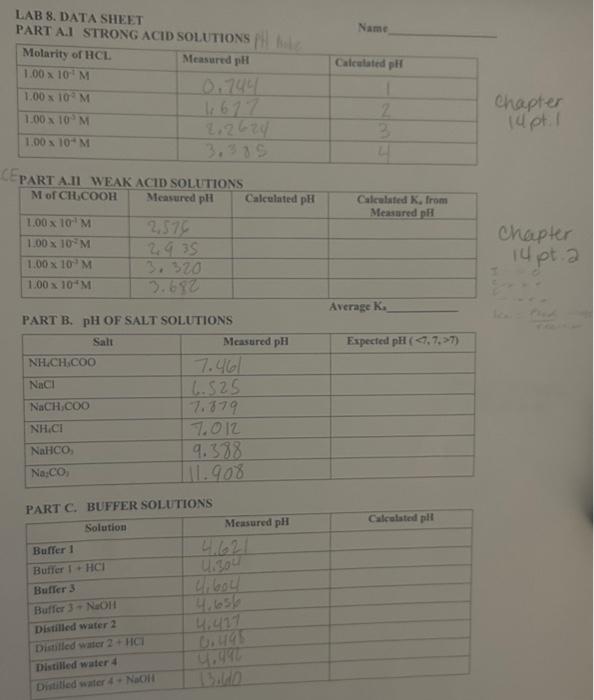 LAB 8. DATA SHEET
Name
PART A.I STRONG ACID SOLUTIONS pH
Molarity of HCL Measured pH Calculated pH
1.00 x 10⁻¹ M 0.744 1
1.00 x 10⁻² M 1.677 2
1.00 x 10⁻³ M 2.2624 3
1.00 x 10⁻⁴ M 3.385 4
Chapter
14 pt. 1
PART A.II WEAK ACID SOLUTIONS
M of CH₃COOH Measured pH Calculated pH Calculated Kₐ from
Measured pH
1.00 x 10⁻¹ M 2.576
1.00 x 10⁻² M 2.935
1.00 x 10⁻³ M 3.320
1.00 x 10⁻⁴ M 3.682
Chapter
14 pt. 2
Average Kₐ
PART B. pH OF SALT SOLUTIONS
Salt Measured pH Expected pH (<7, 7, >7)
NH₄CH₃COO 7.461
NaCl 6.525
NaCH₃COO 7.879
NH₄Cl 7.012
NaHCO₃ 9.388
Na₂CO₃ 11.908
PART C. BUFFER SOLUTIONS
Solution Measured pH Calculated pH
Buffer 1 4.621
Buffer 1 + HCl 4.304
Buffer 3 4.604
Buffer 3 + NaOH 4.656
Distilled water 2 4.427
Distilled water 2 + HCl
Distilled water 4 4.492
Distilled water 4 + NaOH